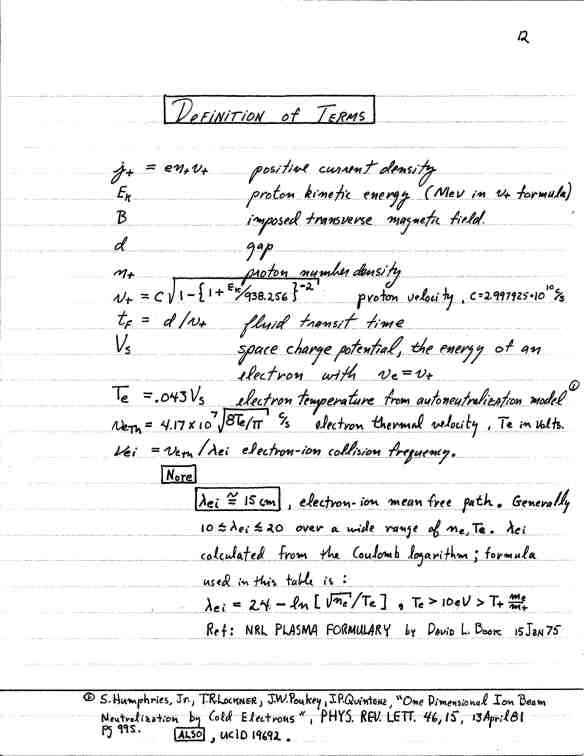 12
DEFINITION of TERMS
j+ = en+v+ positive current density
EK proton kinetic energy (Mev in v+ formula)
B imposed transverse magnetic field.
d gap
n+ proton number density
v+ = C√1-{1+EK/938.256}^-2 proton velocity, C=2.997925·10^10 c/s
tF = d/v+ fluid transit time
Vs space charge potential, the energy of an
electron with ve=v+
Te =.043Vs electron temperature from autoneutralization model ①
veTh = 4.17×10^7 √8Te/π c/s electron thermal velocity, Te in Volts.
νei = veth/λei electron-ion collision frequency.
NOTE
λei ≅ 15cm, electron-ion mean free path. Generally
10 ≤ λei ≤ 20 over a wide range of ne, Te. λei
calculated from the Coulomb logarithm; formula
used in this table is:
λei = 24.-ln[√ne/Te], Te > 10eV > T+ me/m+
Ref: NRL PLASMA FORMULARY by DAVID L. BOOK 15 JAN 75
① S. Humphries, Jr., T.R. LOCKNER, J.W. Poukey, J.P. QUINTENZ, "One Dimensional Ion Beam
Neutralization by Cold Electrons", PHYS. REV. LETT. 46, 15, 13April81
Pg 995. ALSO, UCID 19692.